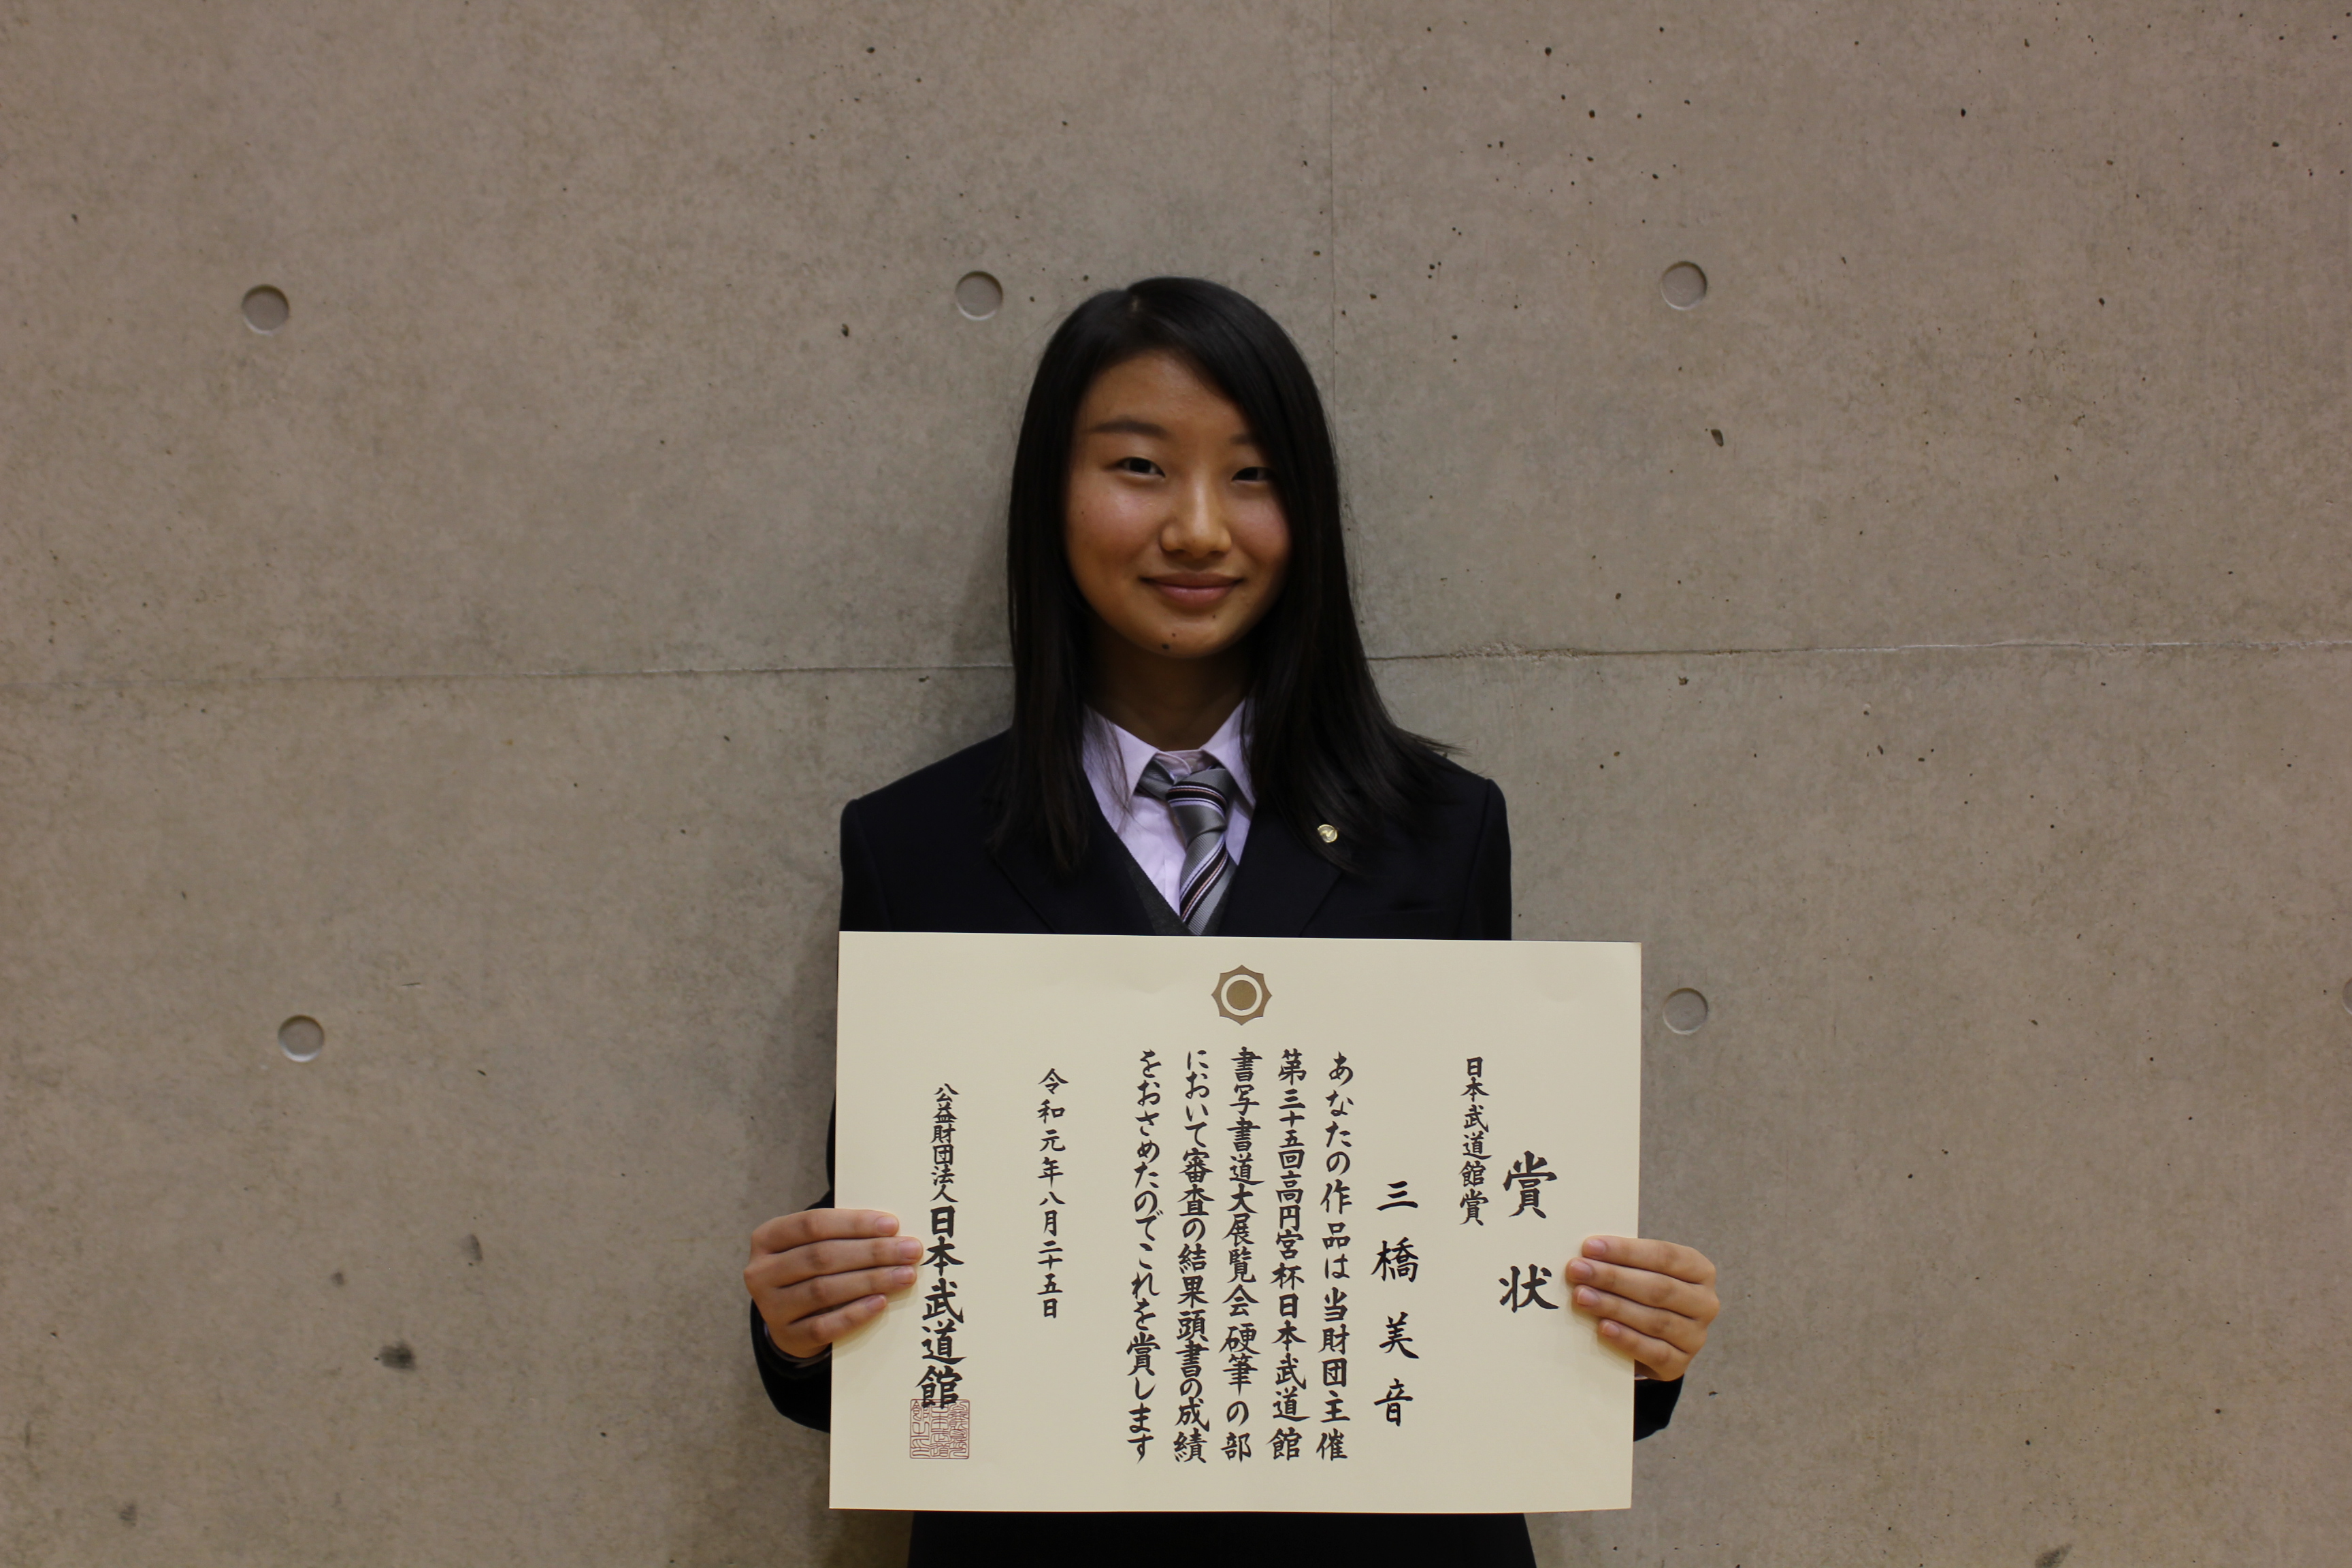 賞状
日本武道館賞
三橋美音
あなたの作品は当財団主催
第三十五回高円宮杯日本武道館
書写書道大展覧会硬筆の部
において審査の結果頭書の成績
をおさめたのでこれを賞します
令和元年八月二十五日
公益財団法人日本武道館